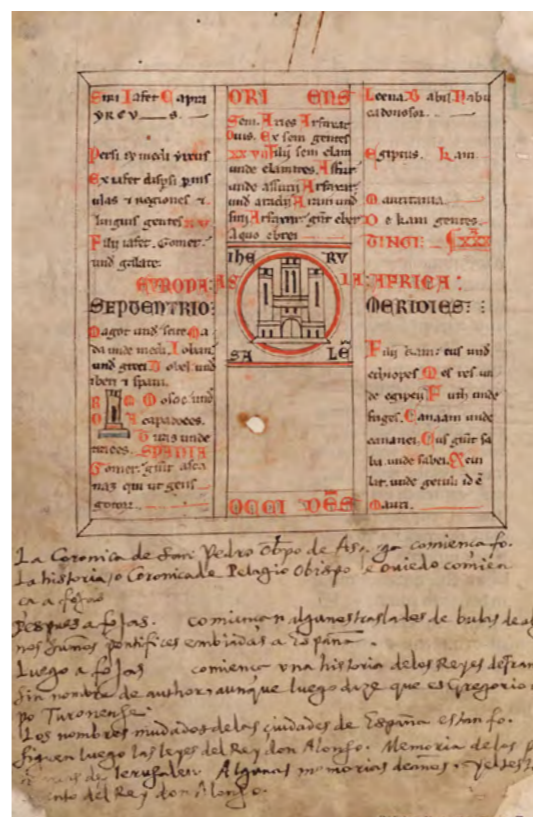 Siri Iafet Capni
yrcus
Persi et medi yrcus
Ex iafet
ulas et regiones et
linguis gentes XV
Filii iafet. Gomer
und galate.
EUROPA:
SEPTENTRIO:
Magog und scite Ma
da unde medi. Ioban
und greci Tobel und
iberi et spani.
RO MA
Mosoc und
capadoces.
Tiras unde
traces. SPANIA
Gomer. asca
naz qui ut gens
gotor.
ORI ENS
Sem. Aries Arfaxat
Duus. Ex sem gentes
XXVII Filii sem elam
unde elamites. Assur
unde assirii Arfaxat
und aram und
siri Arfaxat eber
A quo ebrei
IHE RV
AS IA:
SA LE
OCCI DES
babil Nabu
codonosor.
Egiptus. Kam
Mauritania.
De kam gentes.
TINGI: XXX
AFRICA:
MERIDIES:
Filii kam: cus und
ethiopes Mes res un
de egiptii Futh unde
fuges. Canaam unde
cananei. Cus sa
ba. unde sabei. Deui
lat. unde getuli id e
Mauri.
La Coronica de San Pedro Obpo de As go comienca fo.
La historia, o Coronica de Pelagio Obispo e oviedo comien
ca a fojas
Despues a fojas. comiençan algunos traslados de bulas de al
nos sumos pontifices embiadas a España.
Luego a fojas comiença una historia de los Reyes de Fran
sin nombre de author, aunque luego dize que es Gregorio
po Turonense.
Los nombres mudados de las ciudades de España estan fo.
siguen luego las leyes del Rey don Alonso. Memoria de las
de Ierusalen. Algunas memorias de años. y el tes
nto del Rey don Alonso.